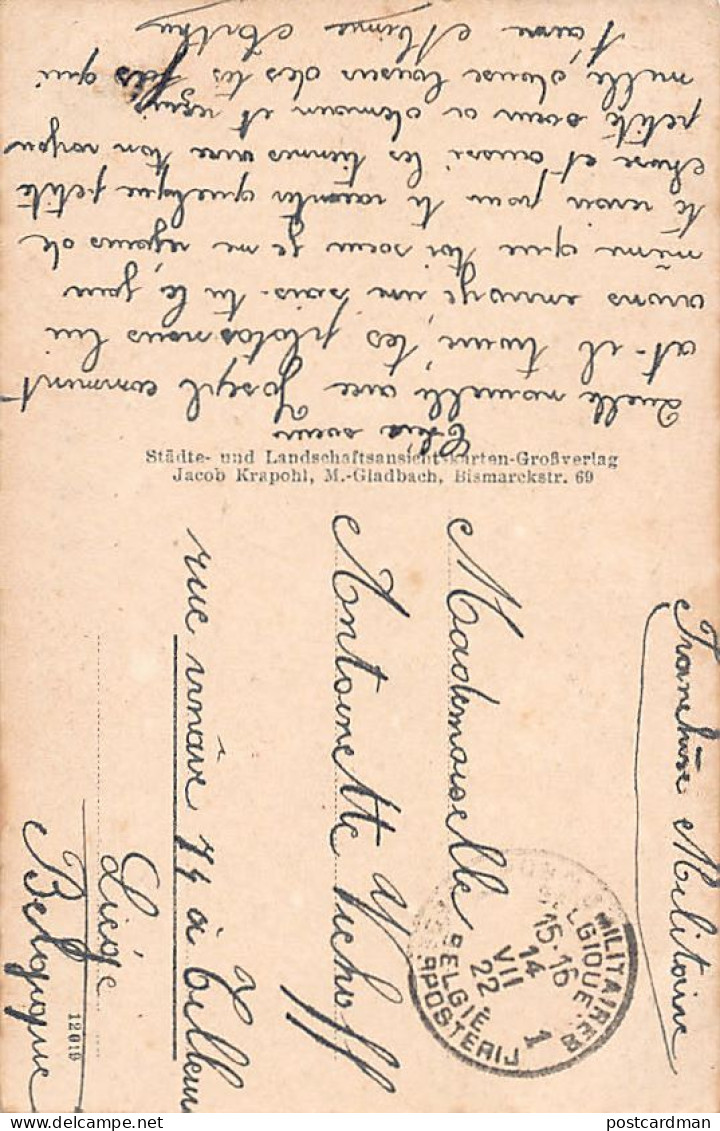 Chia soeur
Quelle nouvelle avec Joseph comment
at-el trouvé, les photos nous lui
avons envoyé une sais-tu le jour
même que toi soeur je me rejouis de
te revoir pour te raconter quelque petite
chose et aussi les tiennes avec ton voyage
petite soeur a demain et reçois
mille douse baisers des tes fois qui
t'aime
Städte- und Landschaftsansichtskarten-Großverlag
Jacob Krapohl, M.-Gladbach, Bismarckstr. 69
Franchise Militaire
Mademoiselle
Antoinette
rue vinâve 74 à Tilleur
Liége
Belgique
12019
MILITAIRES
BELGIQUE
15-16
14
VII
22
BELGIË
POSTERIJ
1
postcardman